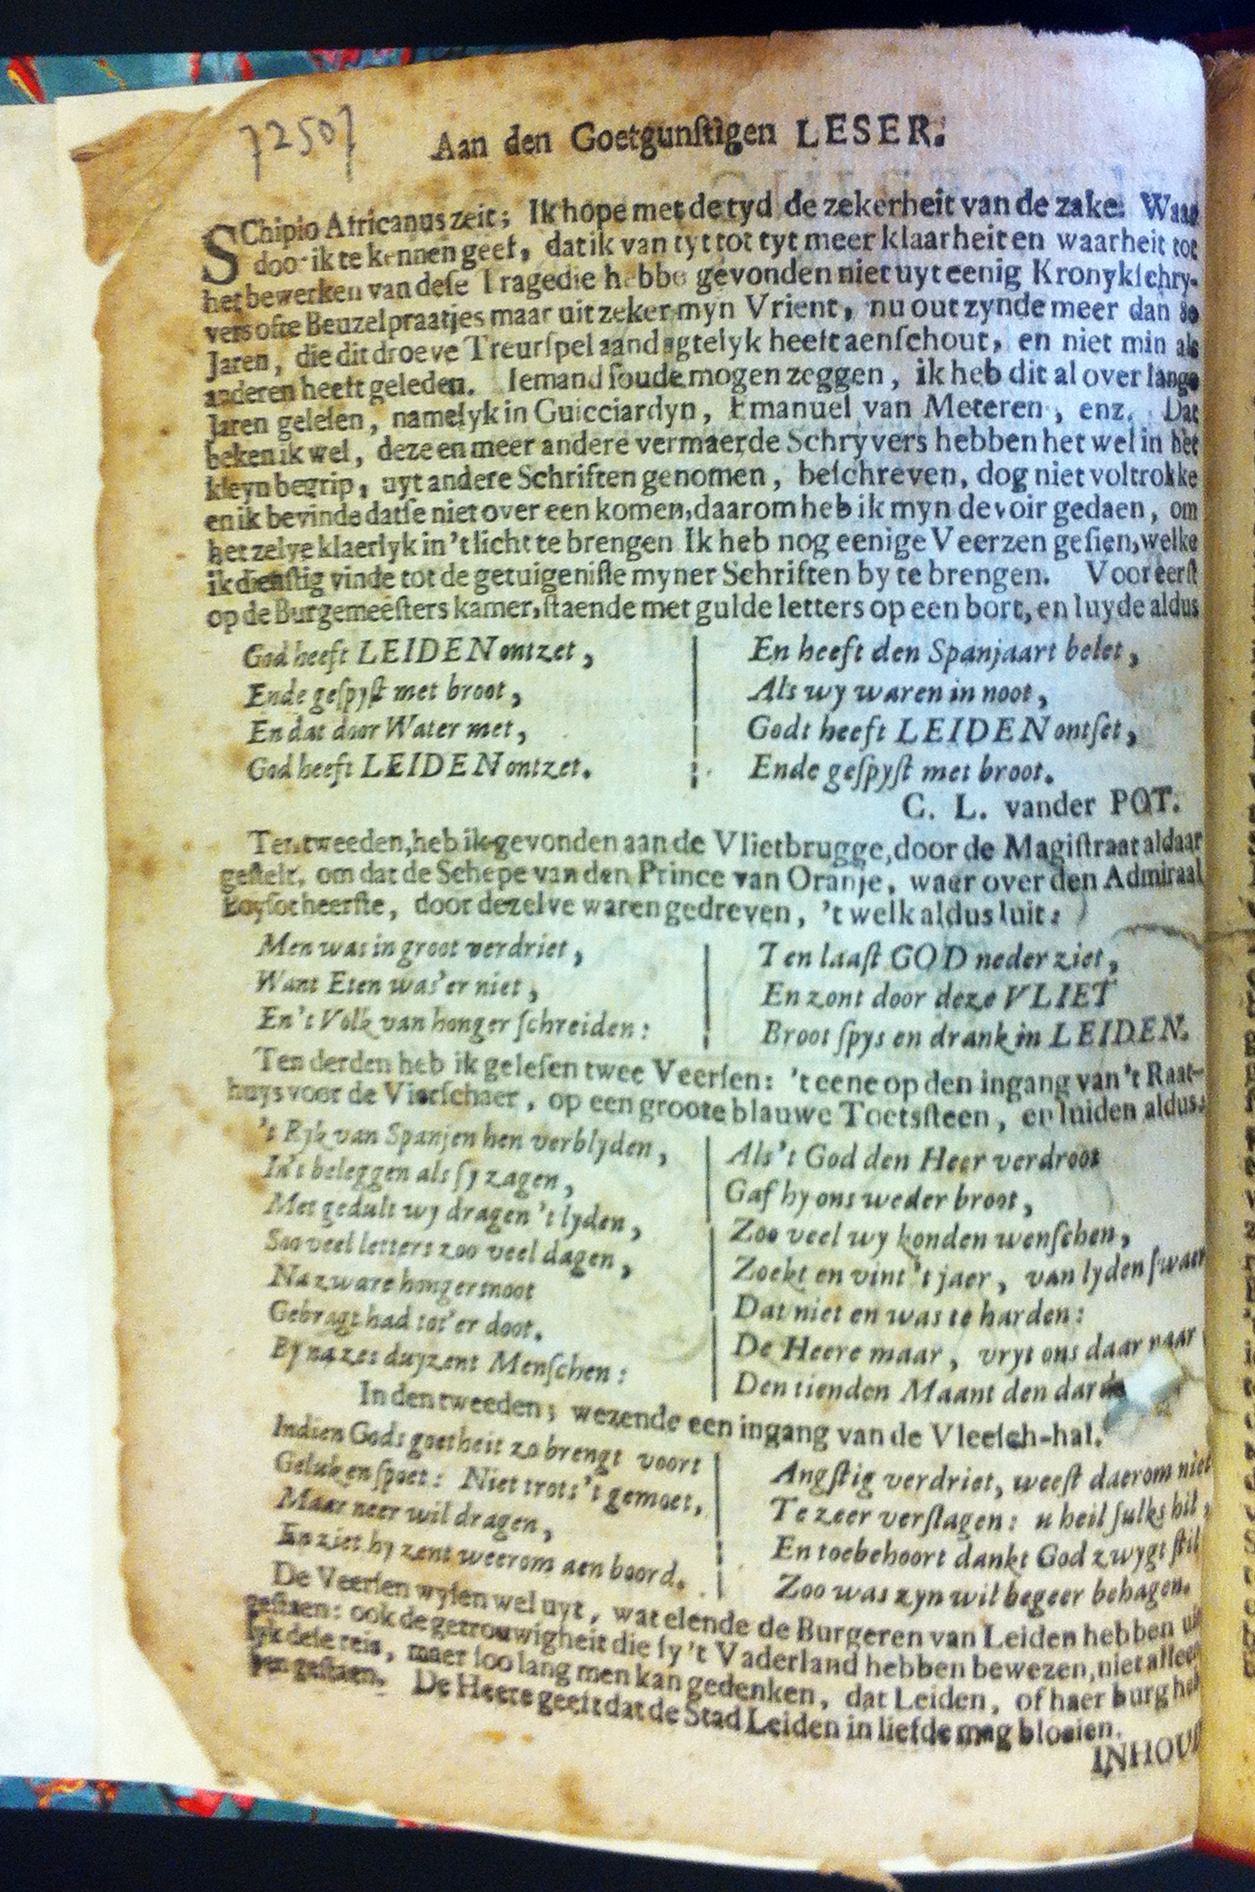 72507
Aan den Goetgunſtigen LESER.
SChipio Africanus zeit; Ik hope met de tyd de zekerheit van de zake: Waar
door ik te kennen geef, dat ik van tyt tot tyt meer klaarheit en waarheit tot
het bewerken van deſe Tragedie hebbe gevonden niet uyt eenig Kronykſchry-
vers ofte Beuzelpraatjes maar uit zeker myn Vrient, nu out zynde meer dan 80
Jaren, die dit droeve Treurſpel aandagtelyk heeft aenſchout, en niet min als
anderen heeft geleden. Iemand ſoude mogen zeggen, ik heb dit al over lange
Jaren geleſen, namelyk in Guicciardyn, Emanuel van Meteren, enz. Dat
beken ik wel, deze en meer andere vermaerde Schryvers hebben het wel in het
kleyn begrip, uyt andere Schriften genomen, beſchreven, dog niet voltrokke
en ik bevinde datſe niet over een komen, daarom heb ik myn devoir gedaen, om
het zelve klaerlyk in 't licht te brengen Ik heb nog eenige Veerzen geſien, welke
ik dienſtig vinde tot de getuigeniſſe myner Schriften by te brengen. Voor eerſt
op de Burgemeeſters kamer, ſtaende met gulde letters op een bort, en luyde aldus
God heeft LEIDEN ontzet,
Ende geſpyſt met broot,
En dat door Water met,
God heeft LEIDEN ontzet.
En heeft den Spanjaart belet,
Als wy waren in noot,
Godt heeft LEIDEN ontſet,
Ende geſpyſt met broot.
C. L. vander POT.
Ten tweeden, heb ik gevonden aan de Vlietbrugge, door de Magiſtraat aldaar
geſtelt, om dat de Schepe van den Prince van Oranje, waer over den Admiraal
Boyſot heerſte, door dezelve waren gedreven, 't welk aldus luit:
Men was in groot verdriet,
Want Eten was'er niet,
En 't Volk van honger ſchreiden:
Ten laaſt GOD neder ziet,
En zont door deze VLIET
Broot ſpys en drank in LEIDEN.
Ten derden heb ik geleſen twee Veerſen: 't eene op den ingang van 't Raat-
huys voor de Vierſchaer, op een groote blauwe Toetsſteen, en luiden aldus:
't Ryk van Spanjen hen verblyden,
In't beleggen als ſy zagen,
Met gedult wy dragen 't lyden,
Soo veel letters zoo veel dagen,
Na zware hongersnoot
Gebragt had tot'er doot.
By na zes duyzent Menſchen:
Als 't God den Heer verdroot
Gaf hy ons weder broot,
Zoo veel wy konden wenſchen,
Zoekt en vint 't jaer, van lyden ſwaer
Dat niet en was te harden:
De Heere maar, vryt ons daar naar
Den tienden Maant den darde
In den tweeden; wezende een ingang van de Vleeſch-hal.
Indien Gods goetheit zo brengt voort
Geluk en ſpoet: Niet trots 't gemoet,
Maar neer wil dragen,
En ziet hy zent weerom aen boord.
Angſtig verdriet, weeſt daerom niet
Te zeer verſlagen: u heil ſulks hil,
En toebehoort dankt God zwygt ſtil
Zoo was zyn wil begeer behagen.
De Veerſen wyſen wel uyt, wat elende de Burgeren van Leiden hebben uit
geſtaen: ook de getrouwigheit die ſy 't Vaderland hebben bewezen, niet alleen
lyk deſe reis, maer ſoo lang men kan gedenken, dat Leiden, of haer burg heb
ben geſtaen. De Heere geeft dat de Stad Leiden in liefde mag bloeien.
INHOUD